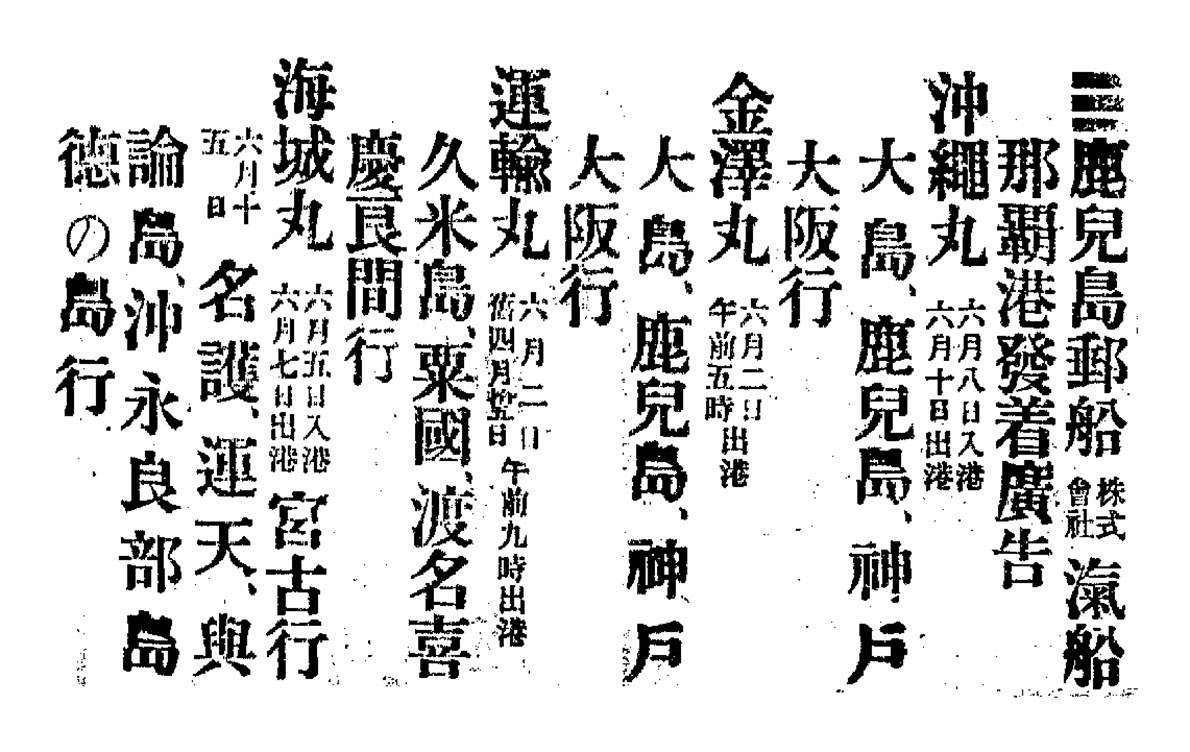 鹿兒島郵船株式會社滊船
那覇港發着廣告
沖繩丸 六月八日入港 六月十日出港
大島、鹿兒島、神戸
大阪行
金澤丸 六月二日午前五時出港
大島、鹿兒島、神戸
大阪行
運輸丸 六月二日 舊四月日 午前九時出港
久米島、粟國、渡名喜
慶良間行
海城丸 六月五日入港 六月七日出港 宮古行
六月十五日 名護、運天、與
論島、沖永良部島
德の島行